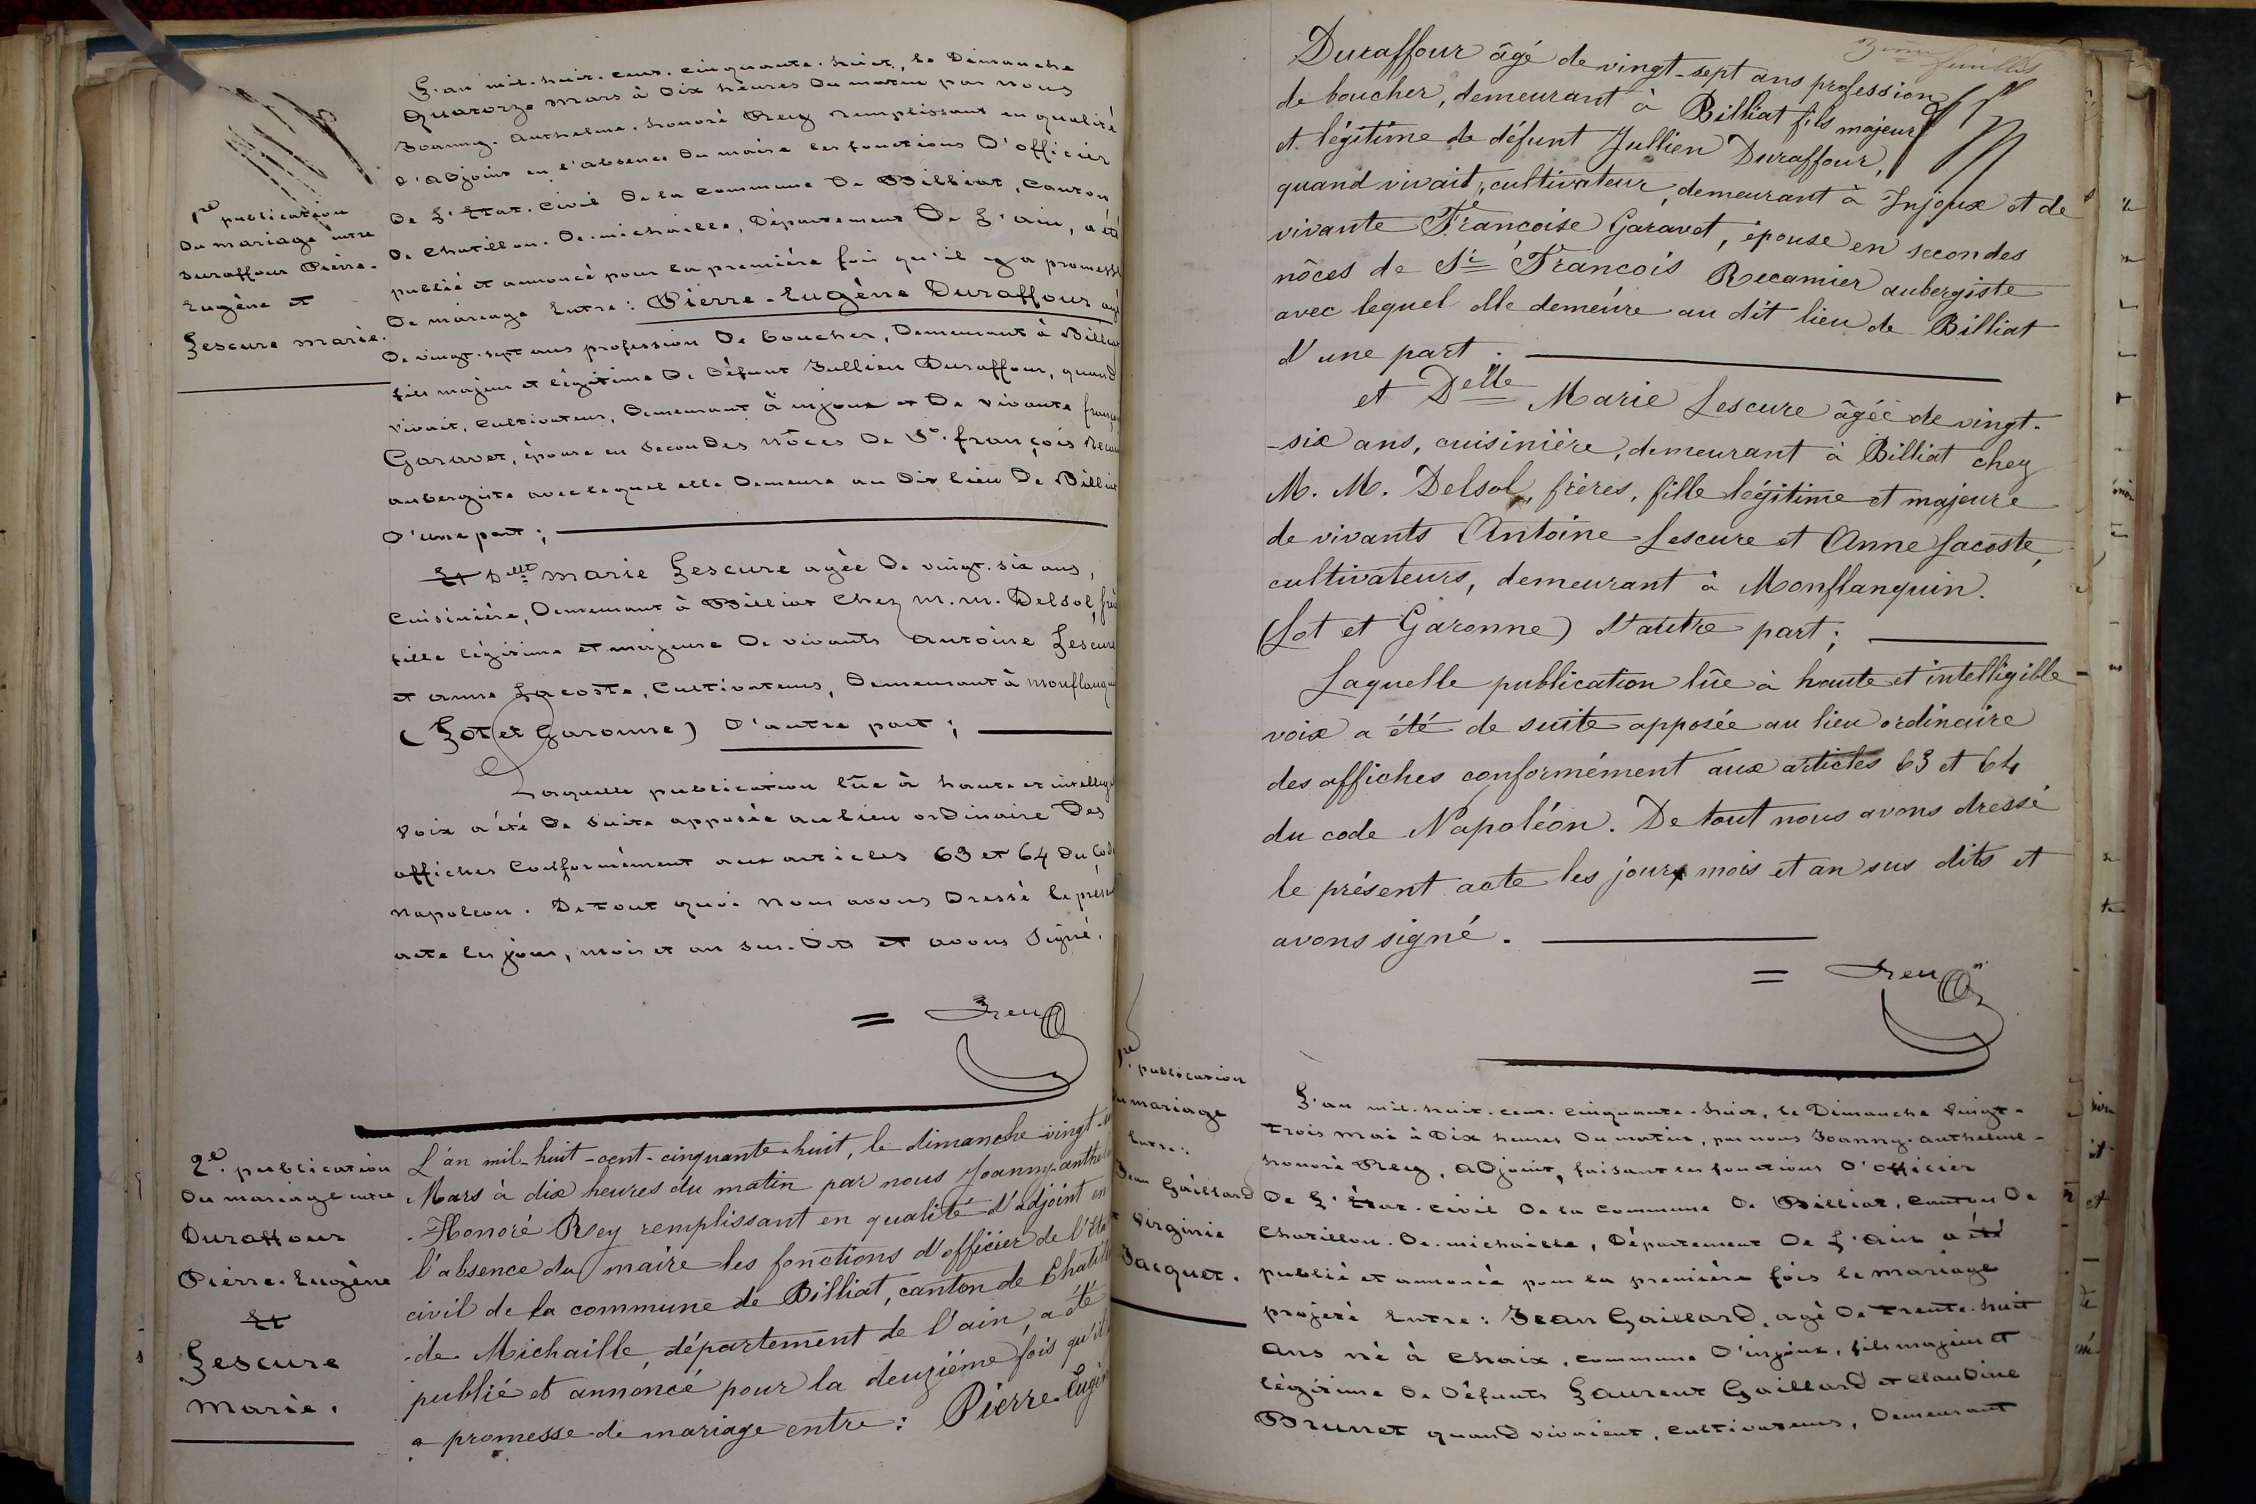 L'an mil-huit-cent-cinquante-huit, le Dimanche
quatorze mars à Dix heures du matin par nous
Joanny-Anthelme-honoré Rey remplissant en qualité
d'adjoint en l'absence du maire les fonctions D'officier
De L'Etat-Civil De la Commune De Billiat, Canton
De Chatillon-De-michaille, Département De L'ain, a été
publié et annoncé pour la première fois qu'il y a promesse
De mariage Entre : Pierre-Eugène Duraffour agé
De vingt-sept ans profession De boucher, Demeurant à Billiat
fils majeur et légitime De Défunt Jullien Duraffour, quand
vivait, cultivateur, Demeurant à injoux et De vivante
Garavet, épouse en secondes nôces De Sr. françois
aubergiste avec lequel elle Demeure au Dit lieu De Billiat
D'une part ;
Et Delle marie Lescure agée De vingt-six ans,
Cuisinière, Demeurant à Billiat Chez m.m. Delsol,
fille légitime et majeure De vivants antoine Lescure
et anne Lacoste, Cultivateurs, Demeurant à
(Lot et Garonne) D'autre part ;
Laquelle publication lûe à haute et
voix a été De suite apposée au lieu orDinaire Des
affiches Conformément aux articles 63 et 64 Du
napoléon. De tout quoi nous avons Dressé le
acte les jour, mois et an sus-Dits et avons Signé.
= Rey
1re publication
Du mariage entre
Duraffour Pierre-
Eugène et
Lescure marie.
2e. publication
Du mariage entre
Duraffour
Pierre-Eugène
Et
Lescure
Marie.
L'an mil-huit-cent-cinquante-huit, le dimanche vingt-
Mars à dix heures du matin par nous Joanny-
-Honoré Rey remplissant en qualité d'adjoint en
l'absence du maire les fonctions d'officier de
civil de la commune de Billiat, canton de
-de Michaille, département de l'ain, a été
publié et annoncé pour la deuzième fois
a promesse de mariage entre : Pierre-Eugène
Duraffour âgé de vingt-sept ans profession
de boucher, demeurant à Billiat fils majeur
et légitime de défunt Jullien Duraffour,
quand vivait, cultivateur, demeurant à Injoux et de
vivante Françoise Garavet, épouse en secondes
nôces de Sr François Recamier aubergiste
avec lequel elle demeure au dit lieu de Billiat
d'une part.
et Delle Marie Lescure âgée de vingt-
-six ans, cuisinière, demeurant à Billiat chez
M. M. Delsol, frères, fille légitime et majeure
de vivants Antoine Lescure et Anne Lacoste,
cultivateurs, demeurant à Monflanquin.
(Lot et Garonne) d'autre part ;
Laquelle publication lûe à haute et intelligible
voix a été de suite apposée au lieu ordinaire
des affiches conformément aux articles 63 et 64
du code Napoléon. De tout nous avons dressé
le présent acte les jour, mois et an sus dits et
avons signé.
= Rey
1re. publication
Du mariage
Entre :
Jean Gaillard
Virginie
Jacquet.
L'an mil-huit-cent-cinquante-huit, le Dimanche vingt-
trois mai à Dix heures Du matin, par nous Joanny-anthelme-
honoré Rey, adjoint, faisant les fonctions D'officier
De L'Etat-civil De la Commune De Billiat, canton De
Chatillon-De-michaille, Département De L'ain a été
publié et annoncé pour la première fois le mariage
projeté Entre : Jean Gaillard, agé De trente-huit
ans né à Chaix, commune D'injoux, fils majeur et
légitime De Défunts Laurent Gaillard et Claudine
Brunet quand vivaient, cultivateurs, Demeurant